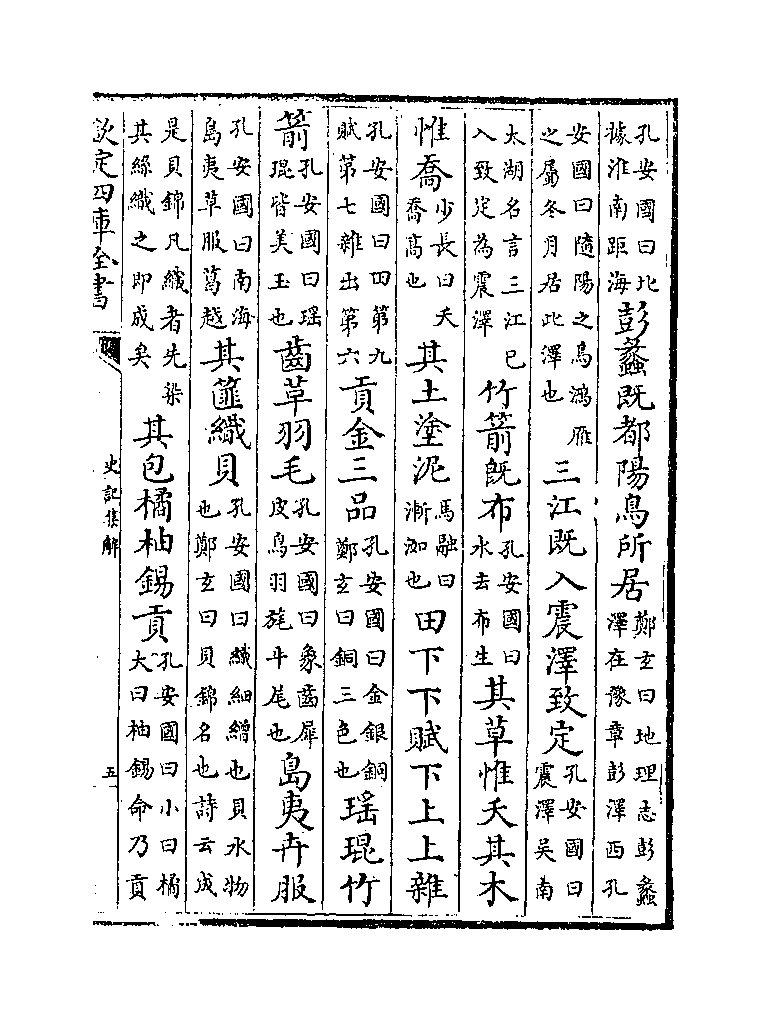 孔安國曰北據淮南距海彭蠡既都陽鳥所居鄭玄曰地理志彭蠡澤在豫章彭澤西孔
安國曰隨陽之鳥鴻雁之屬冬月居此澤也三江既入震澤致定孔安國曰震澤吳南
太湖名言三江已入致定為震澤竹箭既布孔安國曰水去布生其草惟夭其木
惟喬少長曰夭喬高也其土塗泥馬融曰漸洳也田下下賦下上上雜
孔安國曰田第九賦第七雜出第六貢金三品孔安國曰金銀銅鄭玄曰銅三色也瑤琨竹
箭孔安國曰瑤琨皆美玉也齒草羽毛孔安國曰象齒犀皮鳥羽旄牛尾也島夷卉服
孔安國曰南海島夷草服葛越其篚織貝孔安國曰織細繒也貝水物也鄭玄曰貝錦名也詩云成
是貝錦凡織者先染其絲織之即成矣其包橘柚錫貢孔安國曰小曰橘大曰柚錫命乃貢
欽定四庫全書
史記集解
五